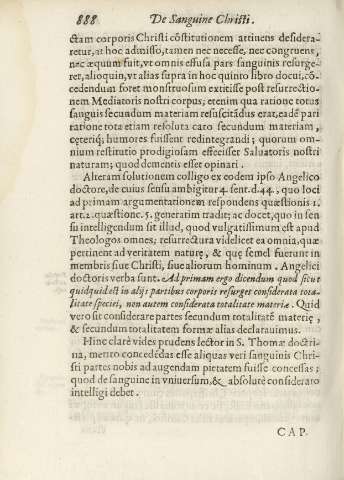 888 De Sanguine Christi.
ctam corporis Christi cõstitutionem attinens desidera-
retur, at hoc admisso, tamen nec necesse, nec congruens,
nec æquum fuit, vt omnis effusa pars sanguinis resurge-
ret, alioquin, vt alias supra in hoc quinto libro docui, cõ-
cedendum foret monstruosum extitisse post resurrectio-
nem Mediatoris nostri corpus; etenim qua ratione totus
sanguis secundum materiam resuscitãdus erat, eadẽ pari
ratione tota etiam resoluta caro secundum materiam,
cęteriq; humores fuissent redintegrandi; quorum om-
nium restitutio prodigiosam effecisset Saluatoris nostri
naturam; quod dementis esset opinari.
Alteram solutionem colligo ex eodem ipso Angelico
doctore, de cuius sensu ambigitur 4. sent. d. 44., quo loci
ad primam argumentationem respondens quæstionis 1.
art. 2. quæstionc. 5. generatim tradit; ac docet, quo in sen
su intelligendum sit illud, quod vulgatissimum est apud
Theologos omnes; resurrectura videlicet ea omnia, quæ
pertinent ad veritatem naturę, & quę semel fuerunt in
membris siue Christi, siue aliorum hominum. Angelici
doctoris verba sunt. Ad primam ergo dicendum quod sicut
quidquid est in alijs partibus corporis resurget considerata tota-
litate speciei, non autem considerata totalitate materiæ. Quid
vero sit considerare partes secundum totalitatẽ materię,
& secundum totalitatem formæ alias declarauimus.
Hinc clarè vides prudens lector in S. Thomæ doctri-
na, merito concedẽdas esse aliquas veri sanguinis Chri-
sti partes nobis ad augendam pietatem fuisse concessas;
quod de sanguine in vniuersum, & absolutè considerato
intelligi debet.
CAP.